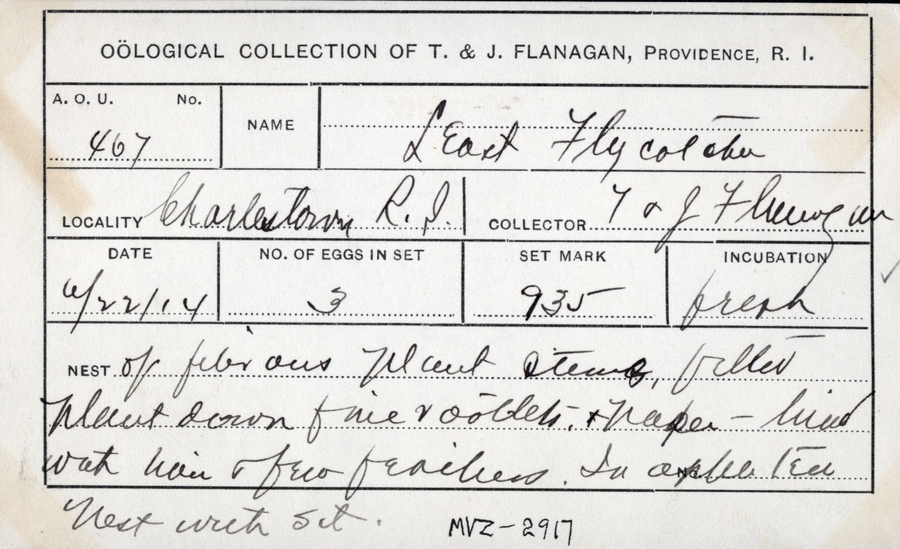 OÖLOGICAL COLLECTION OF T. & J. FLANAGAN, PROVIDENCE, R. I.
A. O. U. No. 467
NAME Least Flycatcher
LOCALITY Charlestown R.I. COLLECTOR T & J Flanagan
DATE 6/22/14
NO. OF EGGS IN SET 3
SET MARK 935
INCUBATION fresh
NEST of fibrous plant stems, felted
plant down fine roötlets, & paper – lined
with hair & few feathers. In apple tree
Nest with set.
MVZ-2917